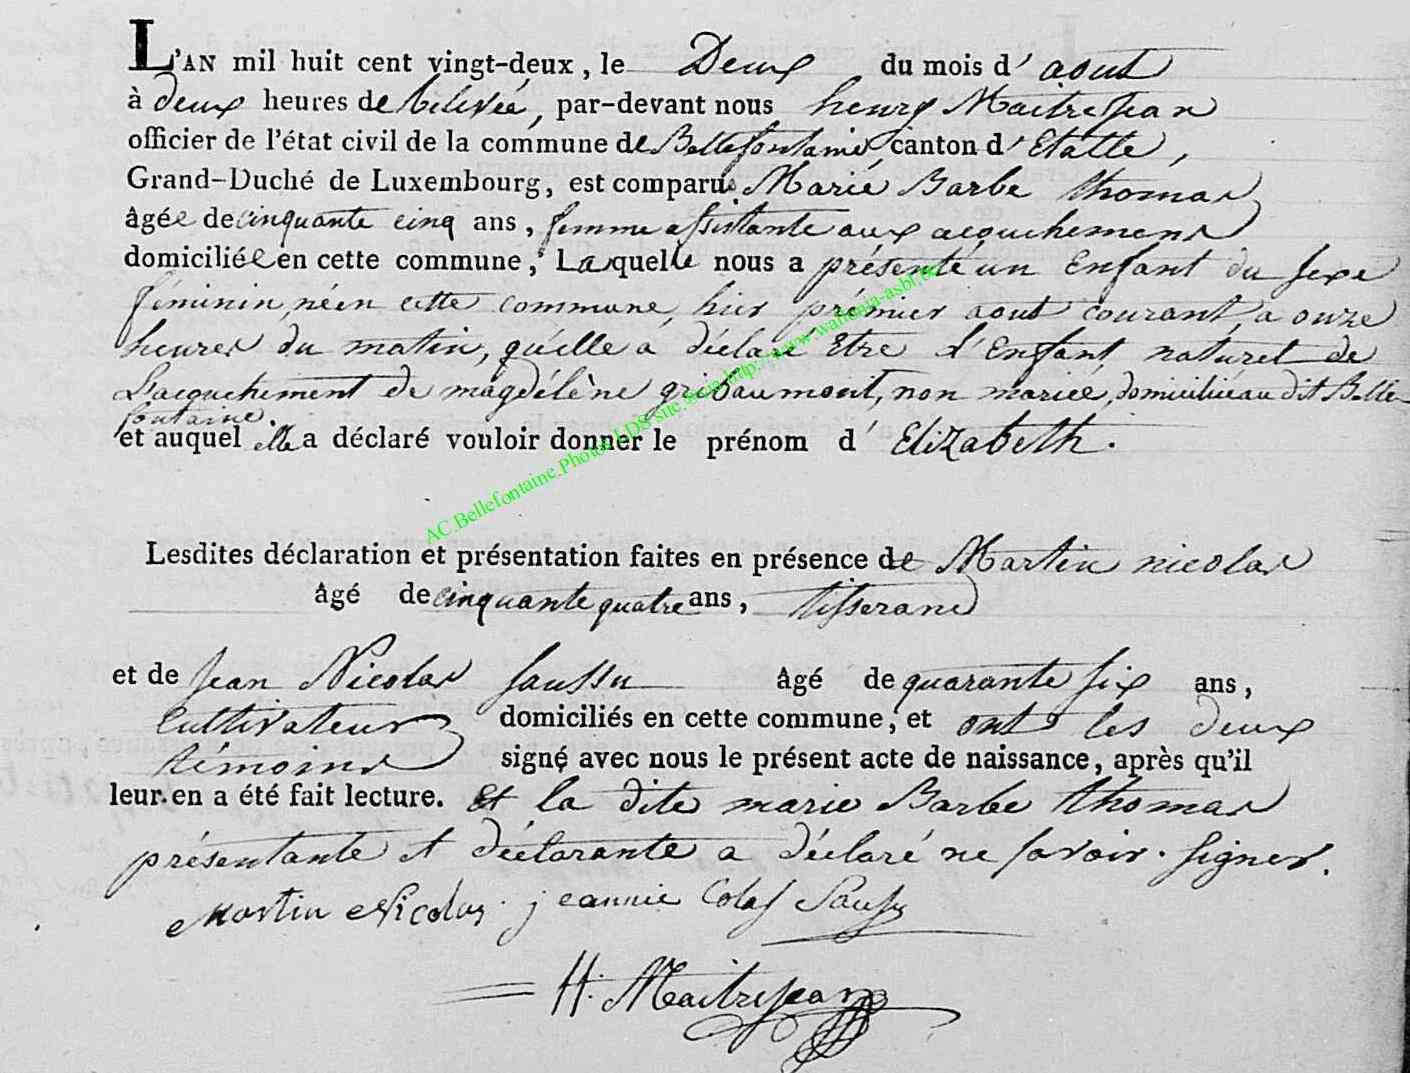 L'AN mil huit cent vingt-deux, le Deux du mois d' aout
à deux heures de Relevée, par-devant nous henry Maitrejean
officier de l'état civil de la commune de Bellefontaine, canton d' Etalle,
Grand-Duché de Luxembourg, est comparue Marie Barbe thomas
âgée de cinquante cinq ans, femme assistante aux acquchemens
domiciliée en cette commune, Laquelle nous a présenté un Enfant du sexe
féminin, née en cette commune, hier prémier aout courant, a onze
heures du matin, qu'elle a déclaré Etre l'Enfant naturel de
L'acquchement de magdélène gribaumont, non mariée, domiciliée au dit Belle-
fontaine.
et auquel elle a déclaré vouloir donner le prénom d' Elizabeth.
AC.Bellefontaine.Photos LDS
Lesdites déclaration et présentation faites en présence de Martin nicolas
âgé de cinquante quatre ans, tisserand
et de Jean Nicolas saussu âgé de quarante six ans,
Cultivateur domiciliés en cette commune, et ont les deux
témoins signé avec nous le présent acte de naissance, après qu'il
leur en a été fait lecture. Et la dite marie Barbe thomas
présentante et déclarante a déclaré ne savoir signer.
Martin Nicolas jeannie Colas Sausu
H. Maitrejean